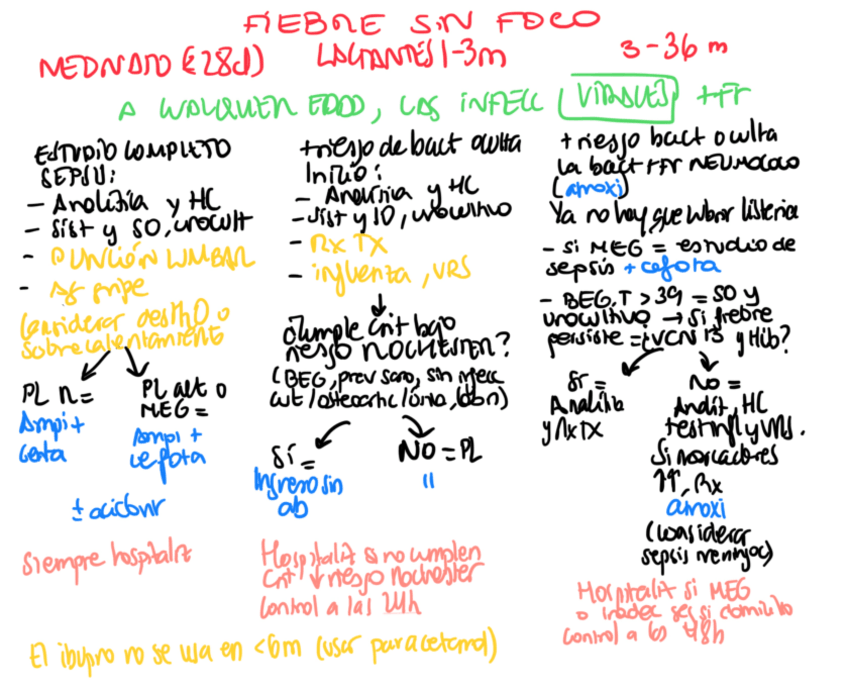 FIEBRE SIN FOCO
NEONATO (≤28d)
LACTANTES 1-3m
3-36 m
A CUALQUIER EDAD, LAS INFECC (VIRALES) ++Fr
ESTUDIO COMPLETO
SEPSIS:
- Analítia y HC
- Sist y SO, urocult
- PUNCIÓN LUMBAR
- Ag gripe
Considerar desH2O o
sobrecalentamiento
PL n=
Ampi+
Genta
PL alt o
MEG=
Ampi +
cefota
± aciclovir
Siempre hospitaliz
+riesgo de bact oculta
Inicio:
- Analítia y HC
- Sist y SO, urocultivo
- Rx TX
- influenza, VRS
¿Cumple Crit bajo
riesgo ROCHESTER?
(BEG, prev sano, sin infecc
cut/osteoartic/orina, lab n)
Sí=
Ingreso sin
ab
NO=PL
"
Hospitaliz si no cumplen
Crit ↓ riesgo Rochester
Control a las 24h
+riesgo bact oculta
La bact +Fr NEUMOCOCO
(amoxi)
Ya no hay que cubrir listeria
- Si MEG = estudio de
sepsis + cefota
- BEG, T > 39 = SO y
urocultivo → Si fiebre
persiste = ¿VCN 13 y Hib?
Sí=
Analítia
y Rx TX
NO=
Analít, HC
test infl y VRS.
Si marcadores
↑↑, Rx
amoxi
(considerar
sepsis meningoc)
Hospitaliz si MEG
o inadec seg si domicilio
Control a las 48h
El ibupro no se usa en <6m (usar paracetamol)